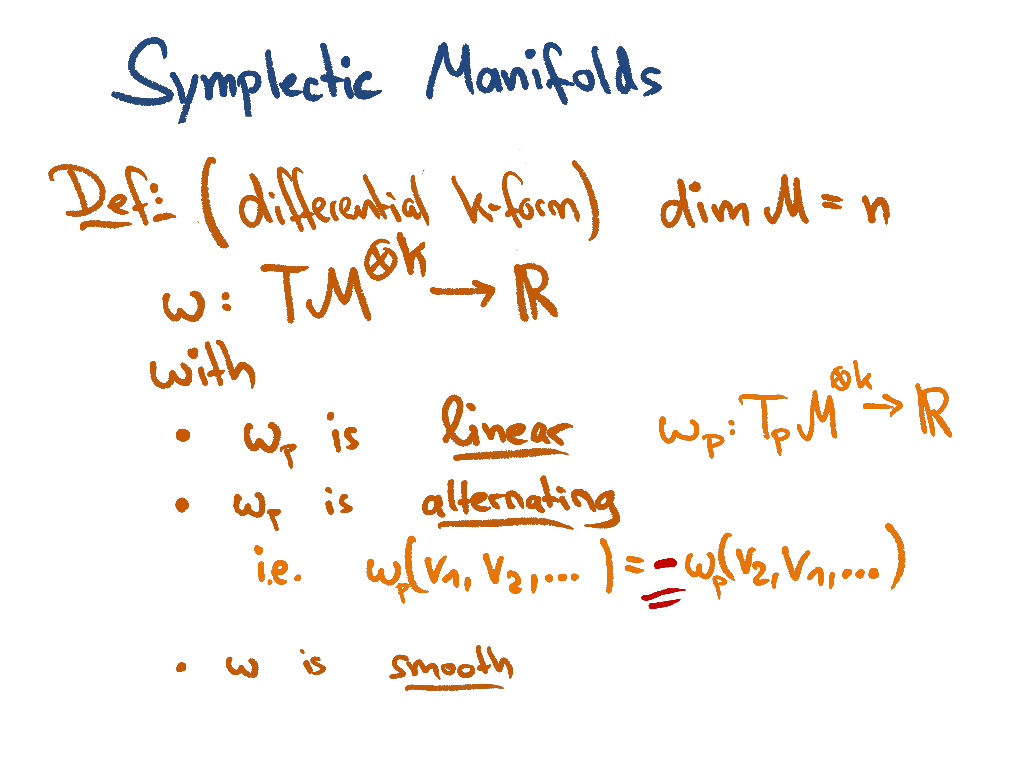 Symplectic Manifolds
Def: (differential k-form) dim M = n
ω: TM^⊗k → ℝ
with
• ω_p is linear ω_p: T_pM^⊗k → ℝ
• ω_p is alternating
i.e. ω_p(v₁, v₂, ...) = -ω_p(v₂, v₁, ...)
• ω is smooth